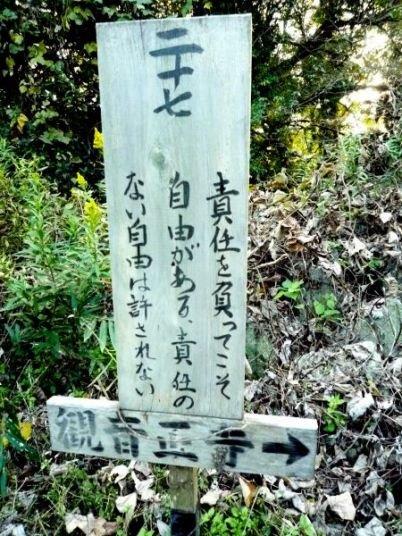 二十七
責任を負ってこそ
自由がある責任の
ない自由は許されない
観音正寺→